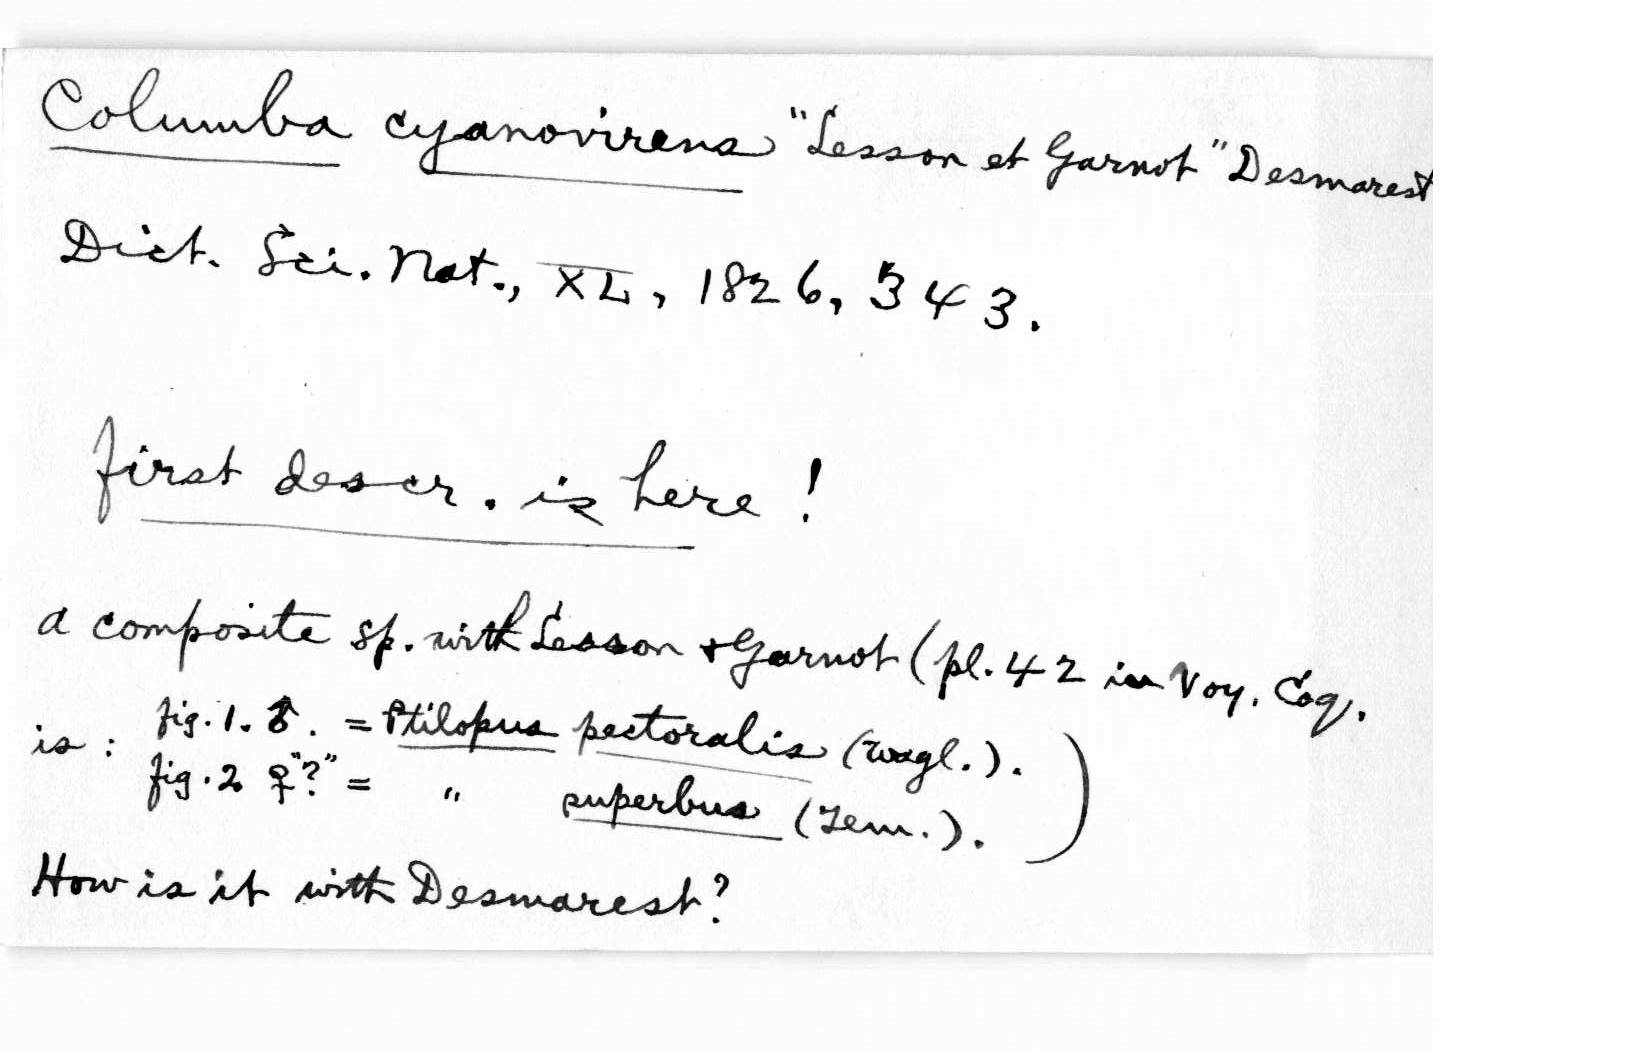 Columba cyanovirens "Lesson et Garnot" Desmarest
Dict. Sci. Nat., XL, 1826, 343.
first descr. is here!
a composite sp. with Lesson & Garnot (pl. 42 in Voy. Coq.
is: fig. 1. ♂. = Ptilopus pectoralis (Wagl.).
fig. 2 ♀"?" = " superbus (Tem.).)
How is it with Desmarest?